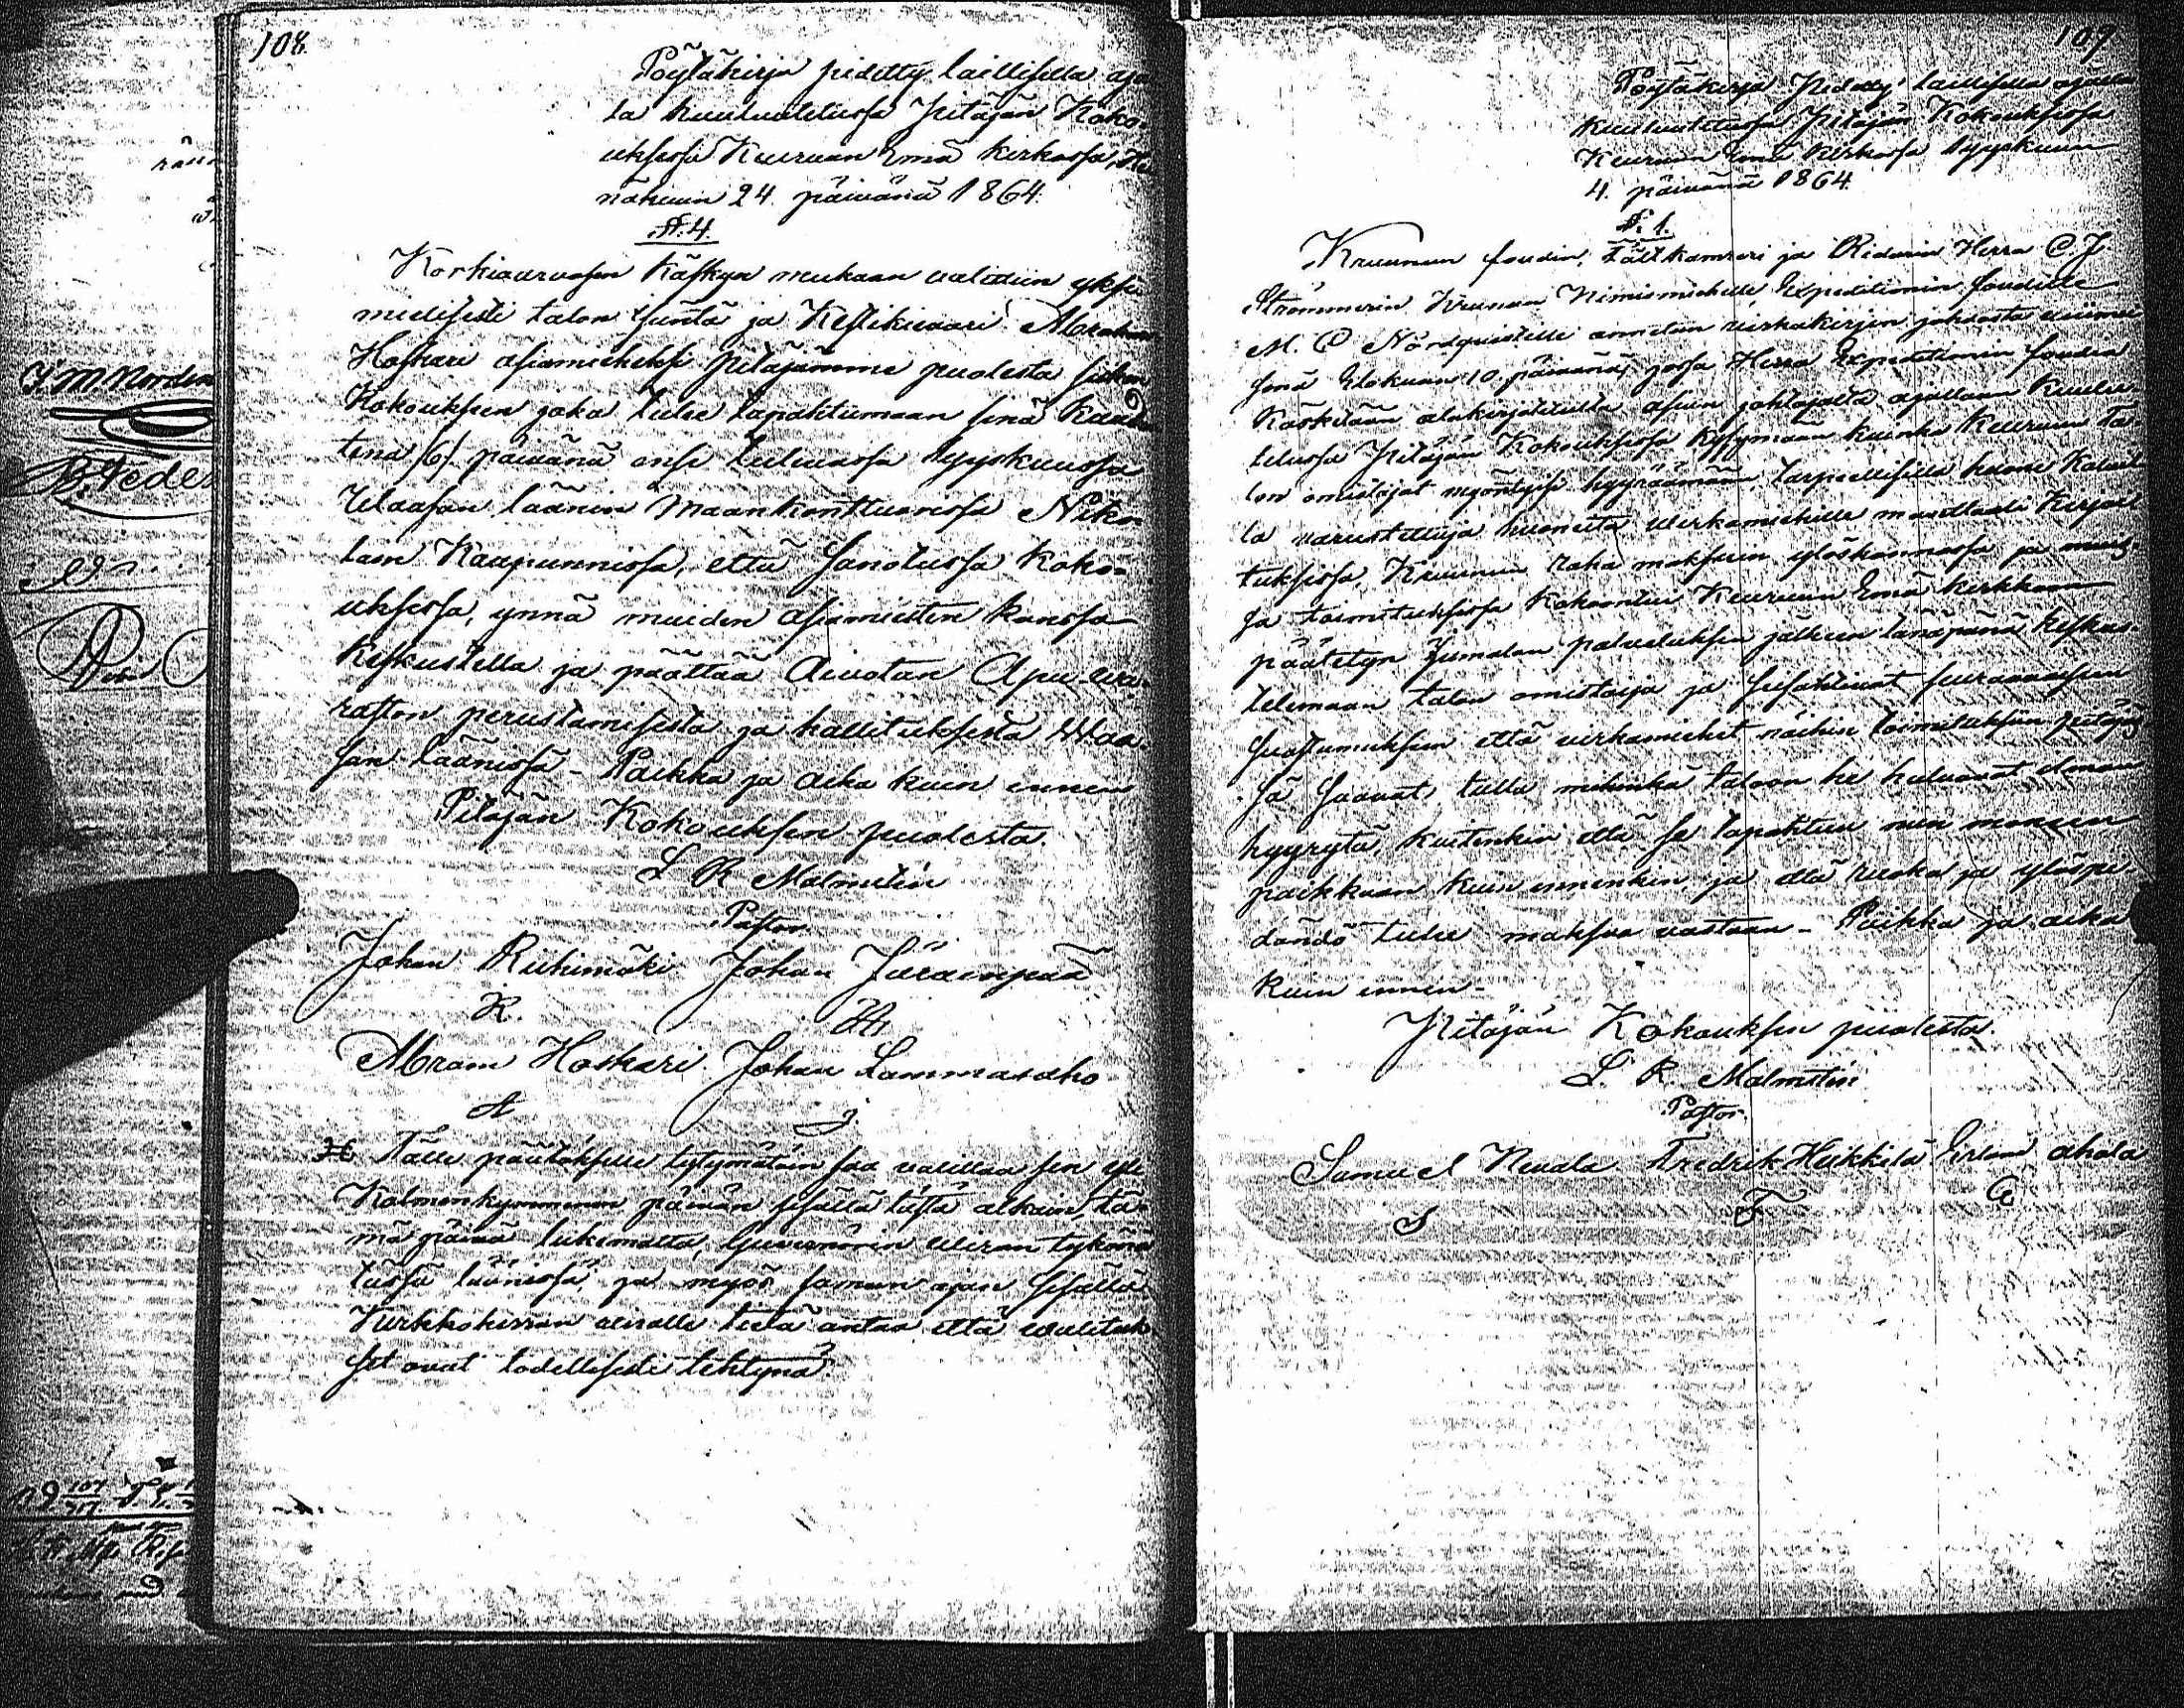 108.
Pöytäkirja pidetty laillisella aja
la kuulutetussa Pitäjän Koko-
uksessa Keuruun Emä kirkossa, Hei
näkuun 24. päivänä 1864.
§. 4.
Korkiaarvosen Käskyn mukaan valittiin yksi
mielisesti talon Isäntä ja Kestikievari Abraham
Hoskari asiamieheksi Pitäjämme puolesta siihen
Kokouksen joka tulee tapahtumaan sinä Kuuden
tena /6/ päivänä ensi tulevassa Syyskuussa
Waasan läänin Maankonttuorissa Niko-
lain Kaupunnissa, että sanotussa Koko-
uksessa, ynnä muiden asiamiesten kanssa
keskustella ja päättää Aivotan Apu-wa-
raston perustamisesta ja hallituksesta Waa-
san läänissä - Paikka ja aika kuin ennen
Pitäjän Kokouksen puolesta.
L R Malmstén
Pastor.
Johan Riihimäki Johan Jukaenpää
R.
Abram Hoskari. Johan Lammasaho
A J.
Tälle päätökselle tytymätöin saa valittaa sen yli
Kolmenkymmenen päivän sisällä tästä alkain, tä-
mä päivä lukematta, Guvernörin viran tykönä
tässä läänissä, ja myös saman ajan sisällä
Kirkkoherran viralle tietä antaa että valituk-
set ovat todellisesti tehtynä.
109
Pöytäkirja Pidetty laillisella ajalla
kuulutetussa Pitäjän Kokouksessa
Keuruun Emä kirkossa Syyskuun
4. päivänä 1864.
§. 1.
Kruunun foudin, Fältkamreri ja Ridarin Herra C. J.
Strömmerin Kruunun Nimismiehelle, Expeditionin foudille
M. C Nordquistille annettiin virkakirjan johdosta viime
senä Elokuun 10 päivänä, jossa Herra Expeditionin foudia
Käsketään alakirjoitetulta asian johtajalta ajallaan Kuulu-
tetussa Pitäjän Kokouksessa kysymään kuinka Keuruun ta-
lon omistajat myöntysi hyyräämään, tarpeellisilla huone Kaluil-
la varustettuja huoneita virkamiehille manttaali Kirjoi-
tuksissa, Kruunun raha maksuin ylöskannossa ja muis-
sa toimituksissa Kokoontui Keuruun Emä kirkkoon
päätetyn Jumalan palveluksen jälkeen tänäpänä keskus-
telemaan talon omistaija ja suostuivat seuraavaisen
Suostumuksen että virkamiehet näihin toimituksiin pitäjäs-
sä saavat tulla mihinkä taloon he haluavat ilman
hyyrytä, kuitenkin että se tapahtuu niin moneen
paikkaan kuin ennenkin, ja että ruoka ja ylöspi-
dändö tulee maksua vastaan - Paikka ja aika
kuin ennen -
Pitäjän Kokouksen puolesta.
L. R. Malmstén
Pastor.
Samuel Nevala Fredrik Heikkilä Erland ahola
S F E